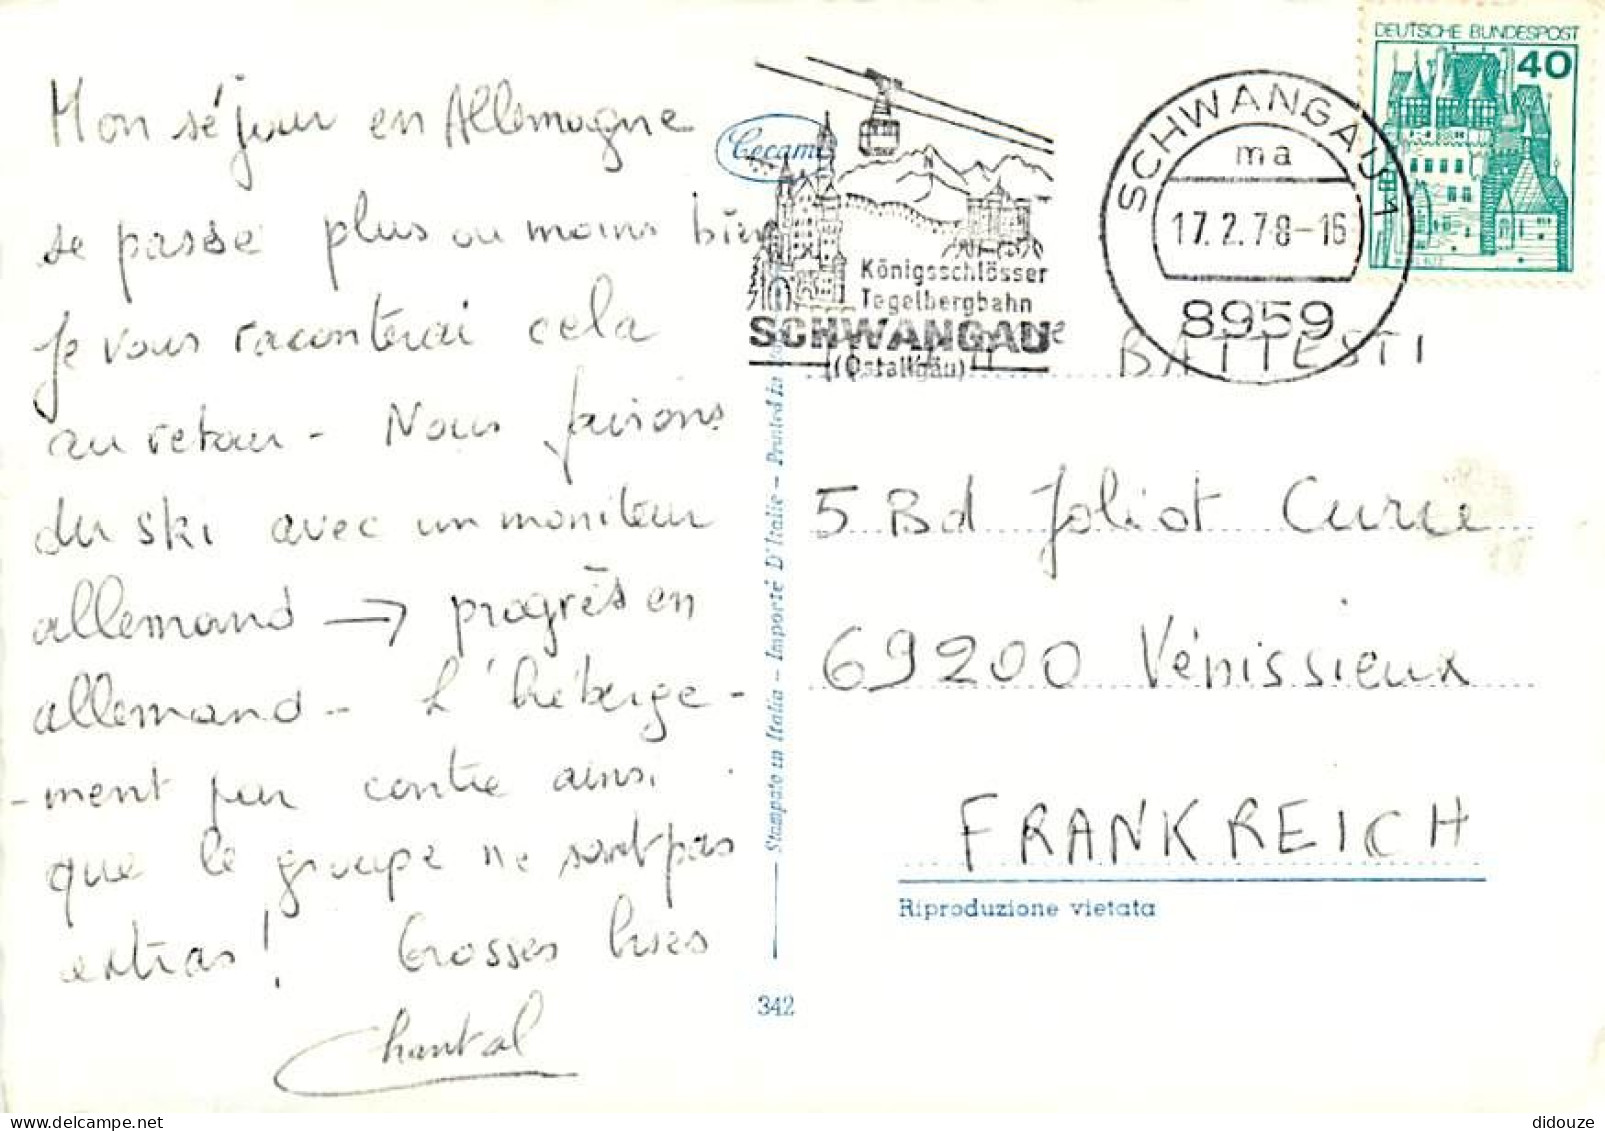 Mon séjour en Allemagne
se passe plus ou moins bien
Je vous raconterai cela
au retour - Nous faisons
du ski avec un moniteur
allemand → progrès en
allemand - L'héberge-
-ment par contre ainsi
que le groupe ne sont pas
extras ! Grosses bises
Chantal
Cecami
Königsschlösser
Tegelbergbahn
SCHWANGAU
(Ostallgäu)
SCHWANGAU 1
ma
17.2.78-16
8959
DEUTSCHE BUNDESPOST
40
BATTESTI
5 Bd Joliot Curie
69200 Vénissieux
FRANKREICH
Riproduzione vietata
Stampato in Italia - Importé D'Italie - Printed in
342
didouze